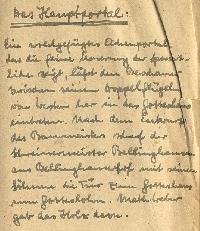 Das Hauptportal:
Ein wohlgefügtes Eichenportal
das die feine Hand
liche zeigt, läßt den Beschauer
zwischen seinen Doppelflügeln
von Westen her in das Gotteshaus
eintreten. Nach dem Entwurf
des Baumeisters schuf der
Schreinermeister Bellinghausen
aus Bellinghauserhof mit seinen
Söhnen die Tür zum Gotteshaus
um Gotteslohn. Math.
gab das Holz dazu.